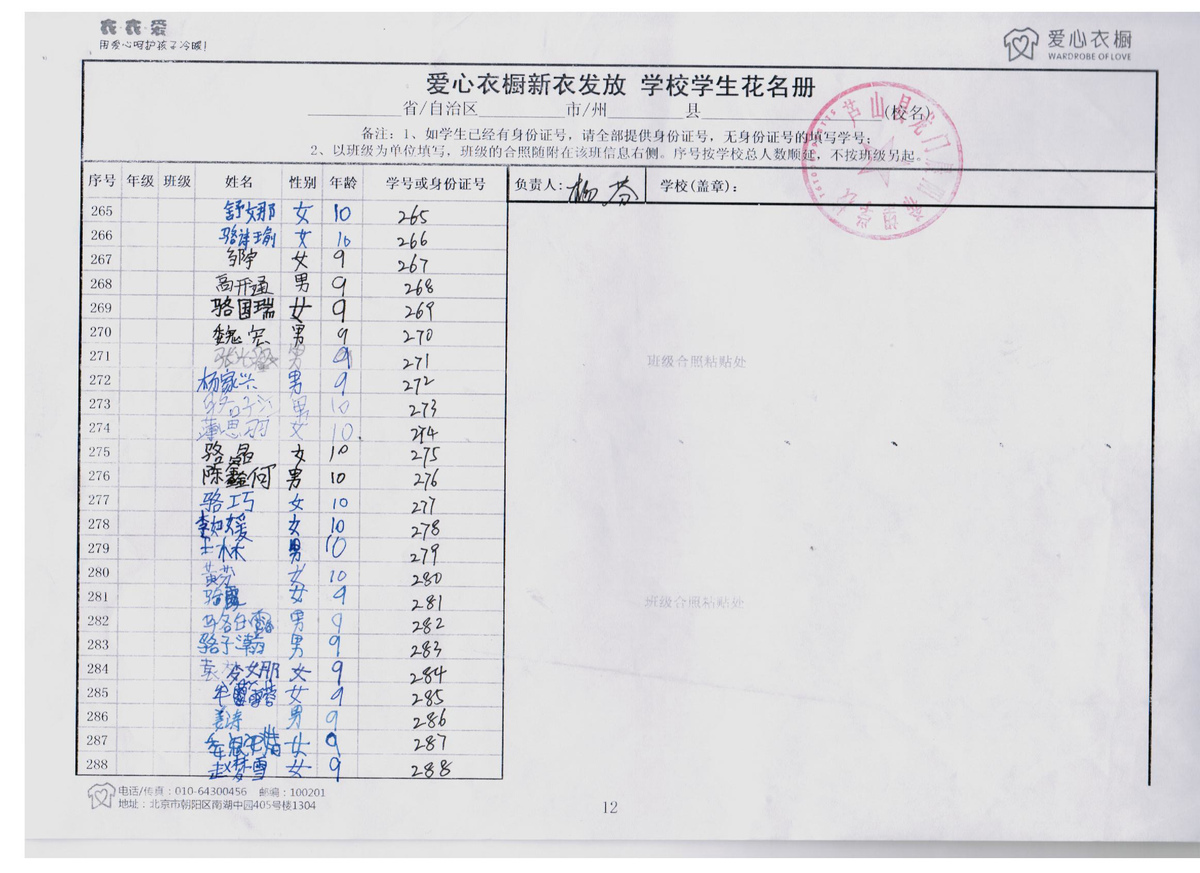 衣衣爱
用爱心呵护孩子冷暖!
爱心衣橱
WARDROBE OF LOVE
爱心衣橱新衣发放 学校学生花名册
省/自治区 市/州 县 (校名)
备注：1、如学生已经有身份证号，请全部提供身份证号，无身份证号的填写学号；
2、以班级为单位填写，班级的合照随附在该班信息右侧。序号按学校总人数顺延，不按班级另起。
芦山县龙门 希望学校
序号 年级 班级 姓名 性别 年龄 学号或身份证号 负责人：杨芬 学校(盖章)：
265 舒女那 女 10 265
266 骆诗瑜 女 10 266
267 邹宇 女 9 267
268 高开通 男 9 268
269 骆国瑞 女 9 269
270 魏宏 男 9 270
271 男 9 271
班级合照粘贴处
272 杨家兴 男 9 272
273 骆子 男 10 273
274 思羽 女 10 274
275 骆晶 女 10 275
276 陈鑫何 男 10 276
277 骆巧 女 10 277
278 李媛 女 10 278
279 林 男 10 279
280 黄芬 女 10 280
281 骆 女 9 281
班级合照粘贴处
282 骆 男 9 282
283 骆子瀚 男 9 283
284 女 9 284
285 牟 女 9 285
286 姜涛 男 9 286
287 女 9 287
288 赵梦雪 女 9 288
电话/传真：010-64300456 邮编：100201
地址：北京市朝阳区南湖中园405号楼1304
12